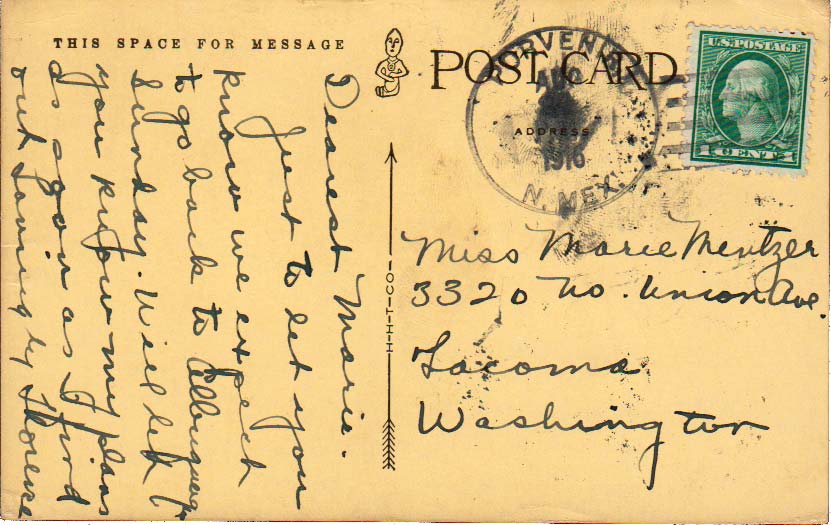 THIS SPACE FOR MESSAGE
POST CARD
ADDRESS
U.S. POSTAGE
1 CENT 1
1916
N. MEX.
H-H-T-CO-
Dearest Marie.
Just to let you
know we expect
to go back to
Sunday. Will let
you know my plans
as soon as I find
out. Loving by
Miss Marie Mentzer
3320 No. Union Ave.
Tacoma
Washington